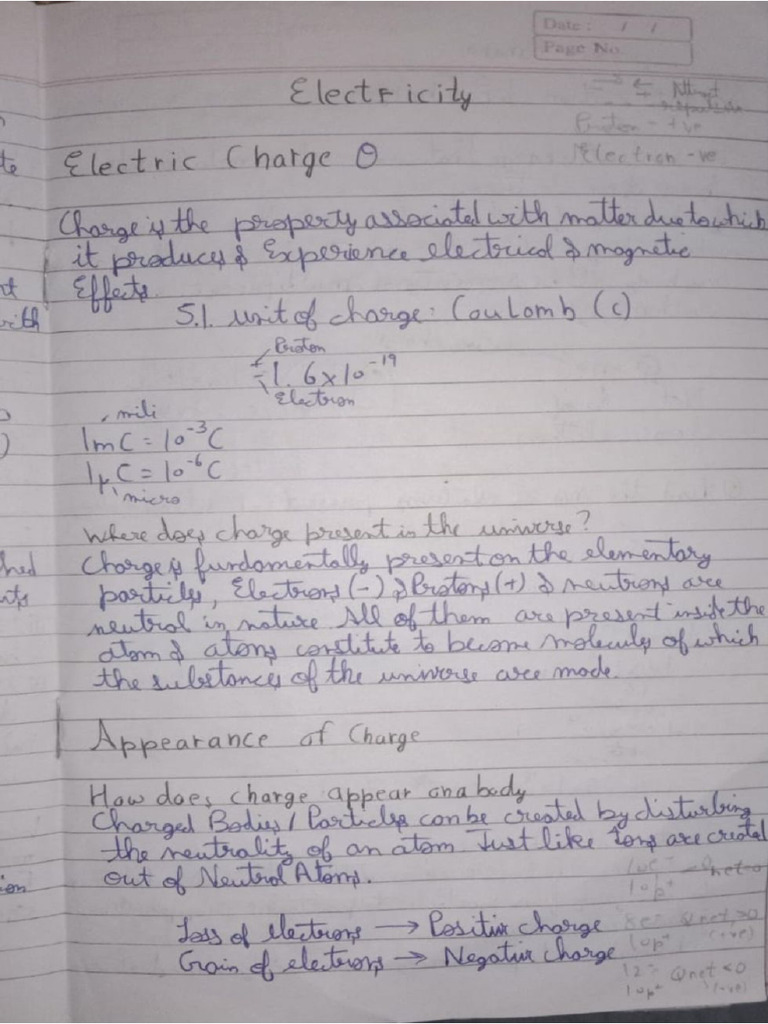 Date : / /
Page No.
Electricity
Proton - +ve
Electron -ve
Electric Charge Θ
Charge is the property associated with matter due to which
it produces & Experience electrical & magnetic
Effects.
S.I. unit of charge: Coulomb (C)
Proton
±1.6x10⁻¹⁹
Electron
mili
1mC = 10⁻³C
1μC = 10⁻⁶C
micro
Where does charge present in the universe?
Charge is fundamentally present on the elementary
particles, Electrons (-) & Protons (+) & neutrons are
neutral in nature All of them are present inside the
atom & atoms constitute to become molecules of which
the substances of the universe are made.
Appearance of Charge
How does charge appear on a body
Charged Bodies / Particles can be created by disturbing
the neutrality of an atom Just like Ions are created
out of Neutral Atoms.
10e⁻ Qnet=0
10p⁺
Loss of electrons → Positive charge
8e⁻ Qnet>0
10p⁺ (+ve)
Gain of electrons → Negative charge
12⁻ Qnet<0
10p⁺ (-ve)